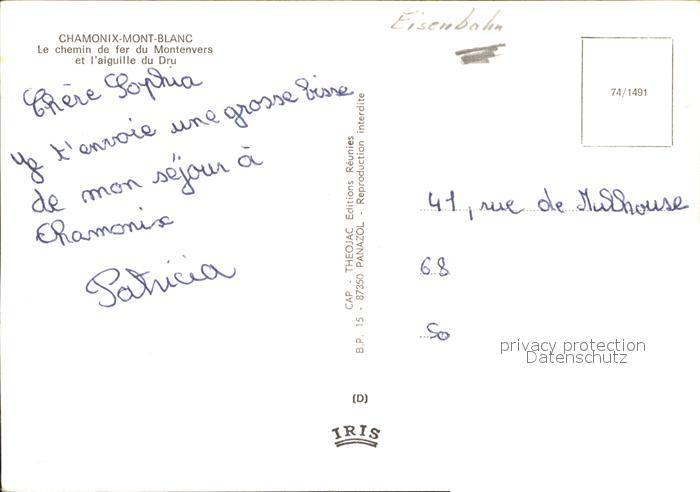 CHAMONIX-MONT-BLANC
Le chemin de fer du Montenvers
et l'aiguille du Dru
Eisenbahn
74/1491
Chère Sophia
t'envoie une grosse bisse
de mon séjour à
Chamonix
Patricia
CAP - THEOJAC Editions Réunies
B.P. 15 - 87350 PANAZOL - Reproduction interdite
41, rue de Mulhouse
68
So
privacy protection
Datenschutz
(D)
IRIS